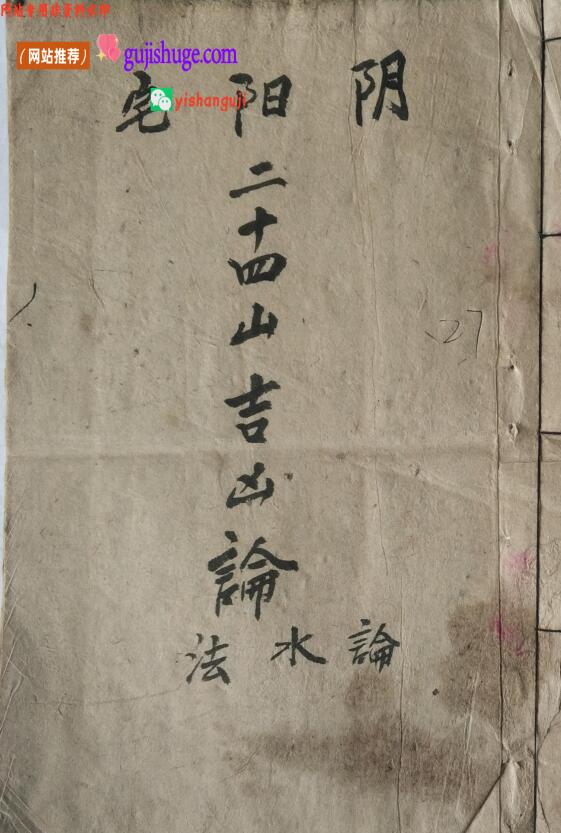 网站专用非卖勿水印
（网站推荐）
gujishuge.com
yishanguji
阴阳宅
二十四山吉凶論
論水法
27